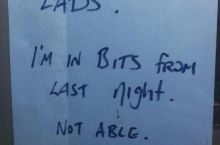 LADS.
I'M IN BITS FROM
LAST NIGHT.
NOT ABLE.